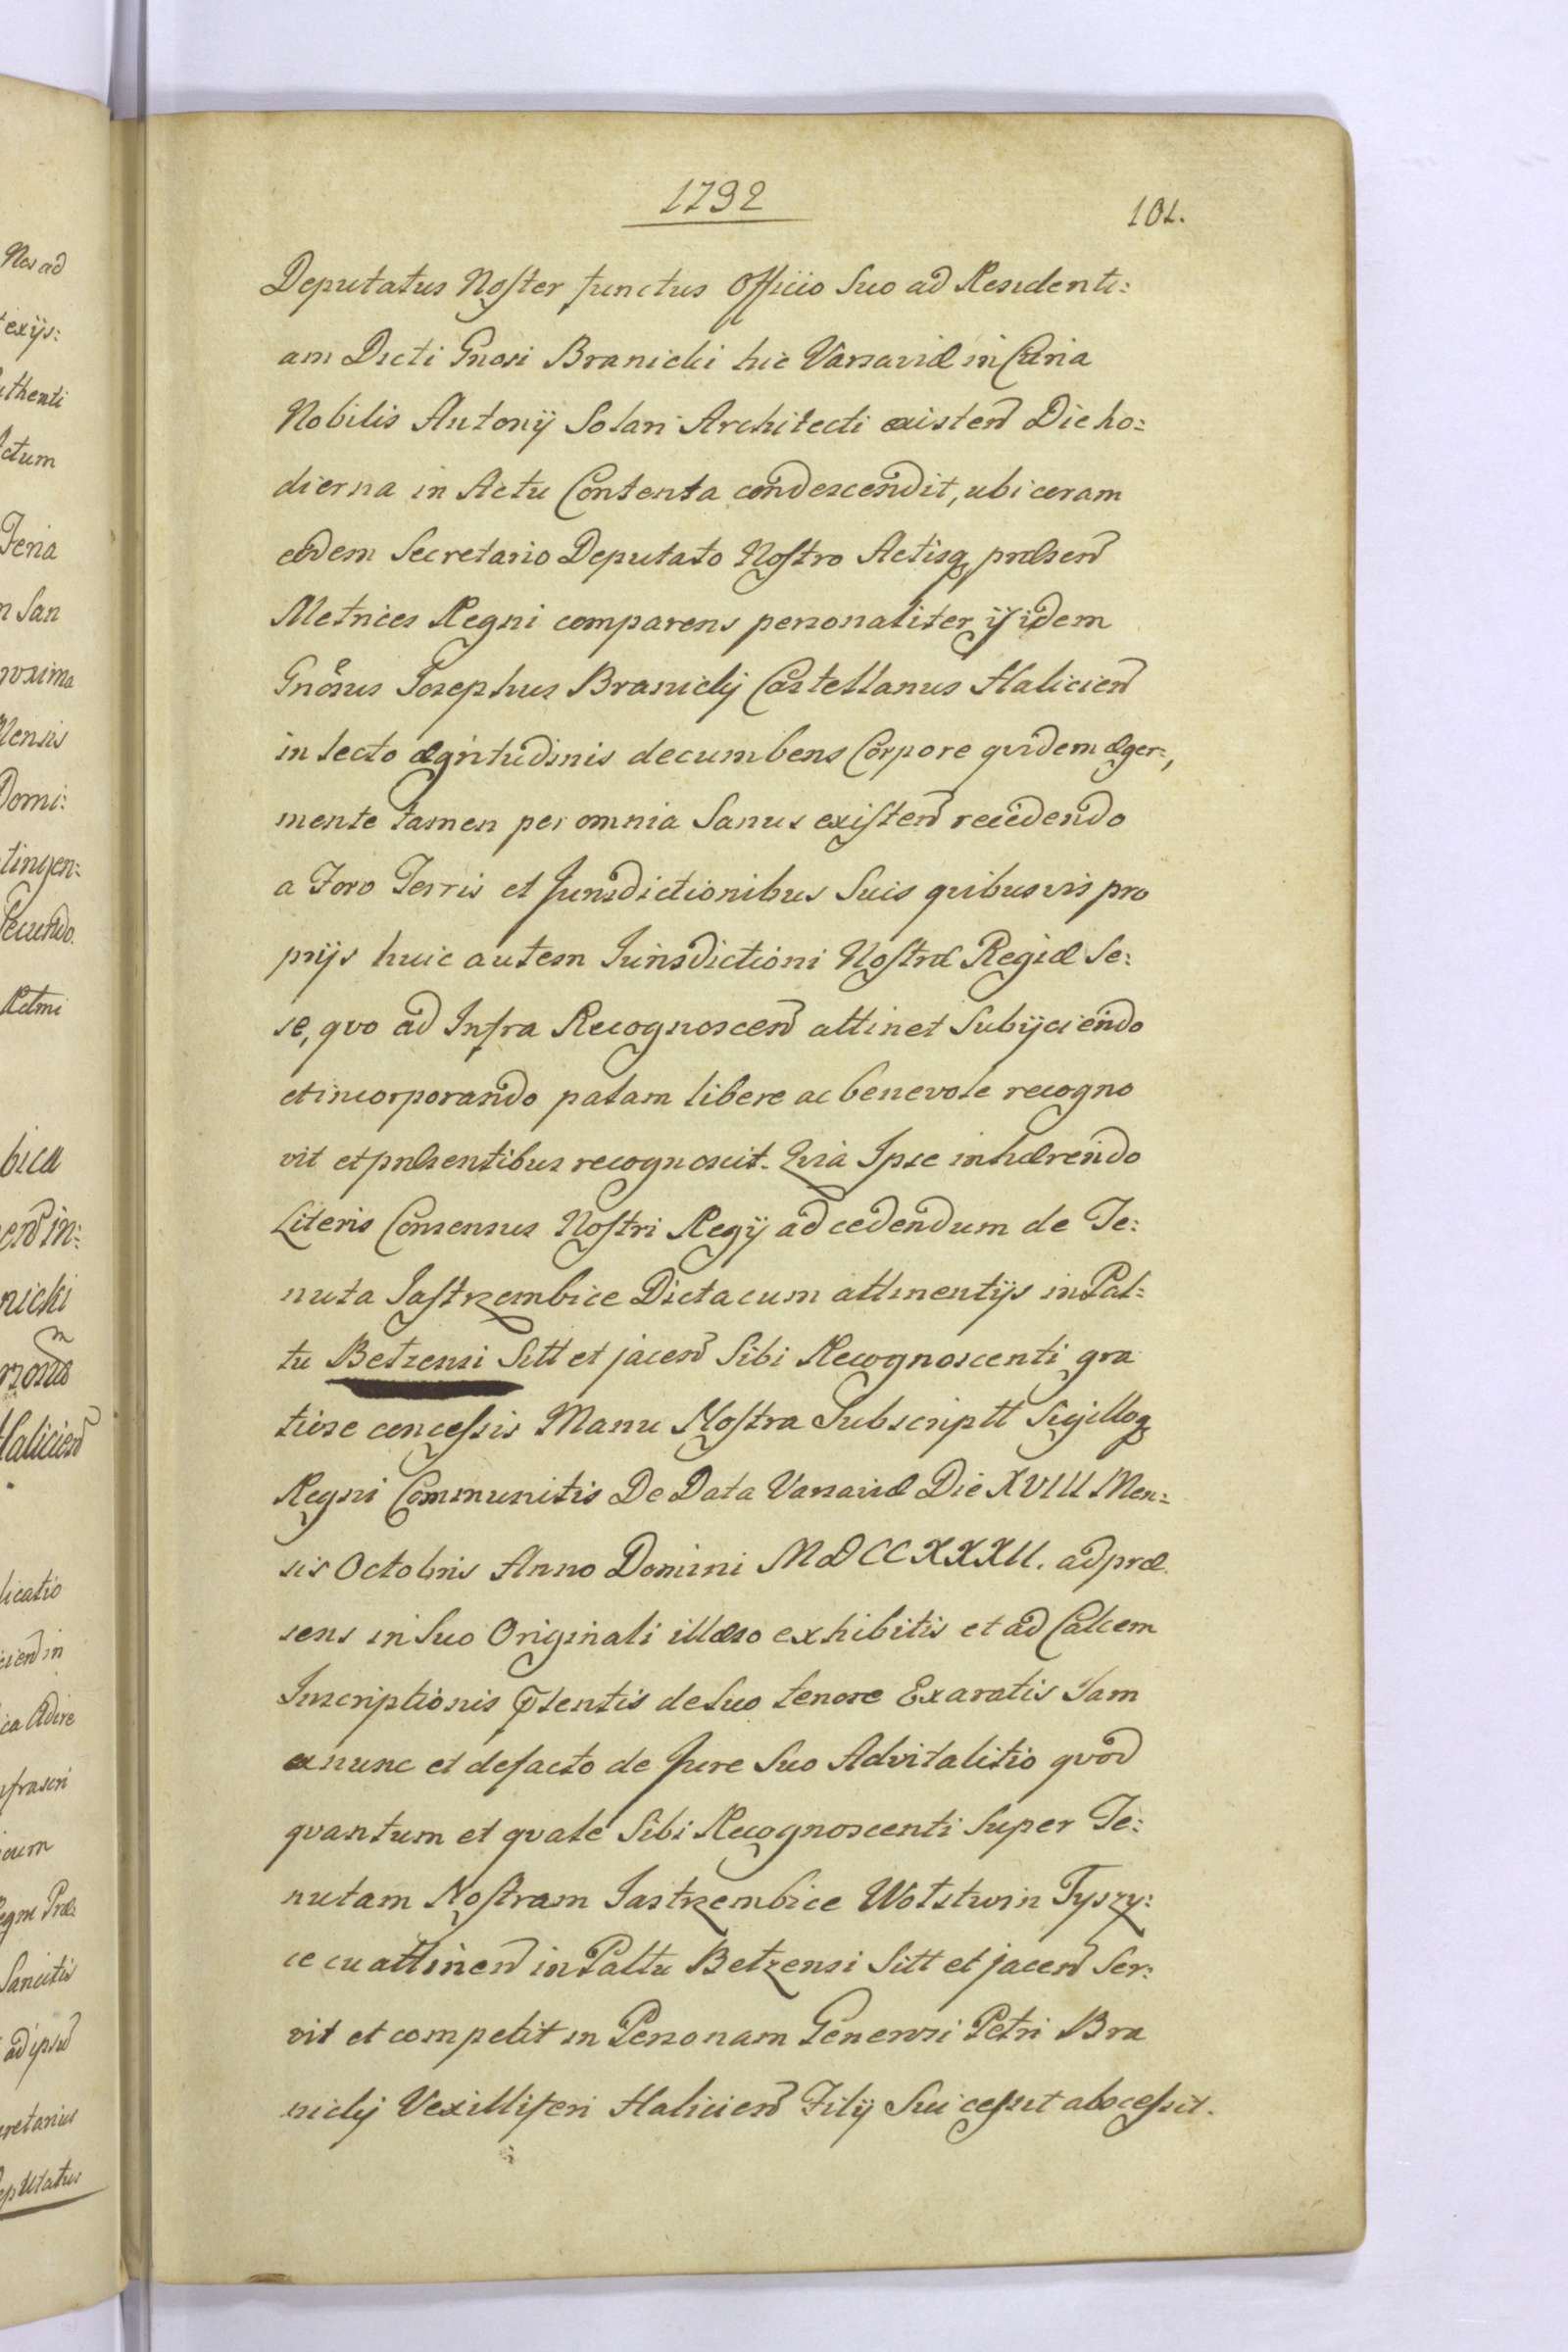 1732
101.
Deputatus Noster functus Officio Suo ad Residenti:
am Dicti Gnosi Branicki hic Varsaviæ in Curia
Nobilis Antonij Solari Architecti existen Die ho:
dierna in Actu Contenta condescendit, ubi coram
eodem Secretario Deputato Nostro Actisq præsen
Metrices Regni comparens personaliter ijsidem
Gnosus Josephus Branickij Castellanus Halicien
in lecto ægritudinis decumbens Corpore quidem æger:,
mente tamen per omnia Sanus existen recedendo
a Foro Terris et Jurisdictionibus Suis quibusvis pro
prijs huic autem Jurisdictioni Nostræ Regiæ Se:
se, quo ad Infra Recognoscen attinet Subijciendo
et incorporando palam libere ac benevole recogno
vit et præsentibus recognoscit. Quia Ipse inhærendo
Literis Consensus Nostri Regij ad cedendum de Te:
nuta Jastrzembice Dicta cum attinentijs in Pal:
tu Betzensi Sitt et jacen Sibi Recognoscenti gra
tiose concessis Manu Nostra Subscriptt Sigilloq
Regni Communitis De Data Varsaviæ Die XVIII Men:
sis Octobris Anno Domini MDCCXXXII. ad præ
sens in Suo Originali illæso exhibitis et ad Calcem
Inscriptionis p̄tentis de Suo tenore Exaratis Jam
ex nunc et de facto de Jure Suo Advitalitio quod
quantum et quale Sibi Recognoscenti Super Te:
nutam Nostram Jastrzembice Wotstwin Tyszy:
ce cu attinen in Paltu Betzensi Sitt et jacen Ser:
vit et competit in Personam Generosi Petri Bra
nickij Vexilliferi Halicien Filij Sui cessit abscessit.